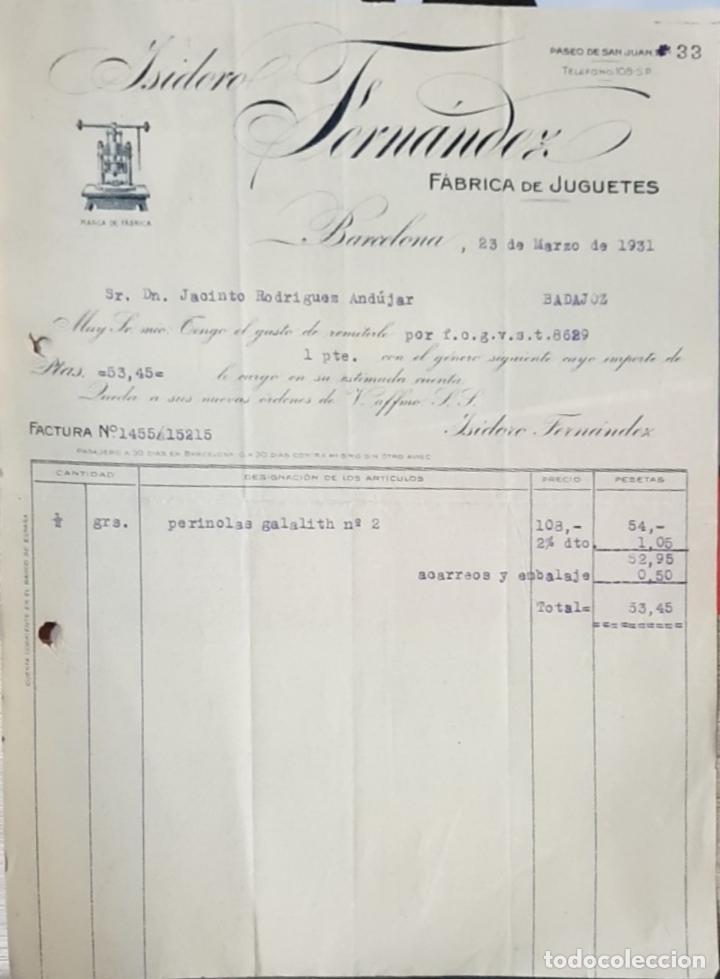 PASEO DE SAN JUAN 33
TELÉFONO 108 S.P.
Isidoro Fernández
FÁBRICA DE JUGUETES
MARCA DE FÁBRICA
Barcelona, 23 de Marzo de 1931
Sr. Dn. Jacinto Rodriguez Andújar BADAJOZ
Muy Sr. mio: Tengo el gusto de remitirle por f.o.g.v.s.t.8629
1 pte. con el género siguiente cuyo importe de
Ptas. =53,45= le cargo en su estimada cuenta.
Queda a sus nuevas órdenes de V. affmo. S.S.
FACTURA Nº 1455/15215 Isidoro Fernández
PAGADERO A 30 DIAS EN BARCELONA Ó A 30 DIAS CONTRA MI GIRO SIN OTRO AVISO
CANTIDAD DESIGNACIÓN DE LOS ARTÍCULOS PRECIO PESETAS
½ grs. perinolas galalith nº 2 108,- 54,-
2% dto. 1,05
52,95
acarreos y embalaje 0,50
Total= 53,45
=========
CUENTA CORRIENTE EN EL BANCO DE ESPAÑA
todocoleccion